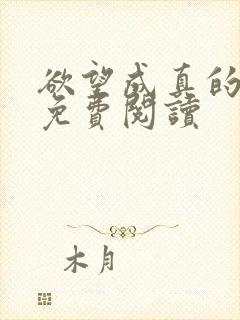 欲望成真的
免費閱讀
木月